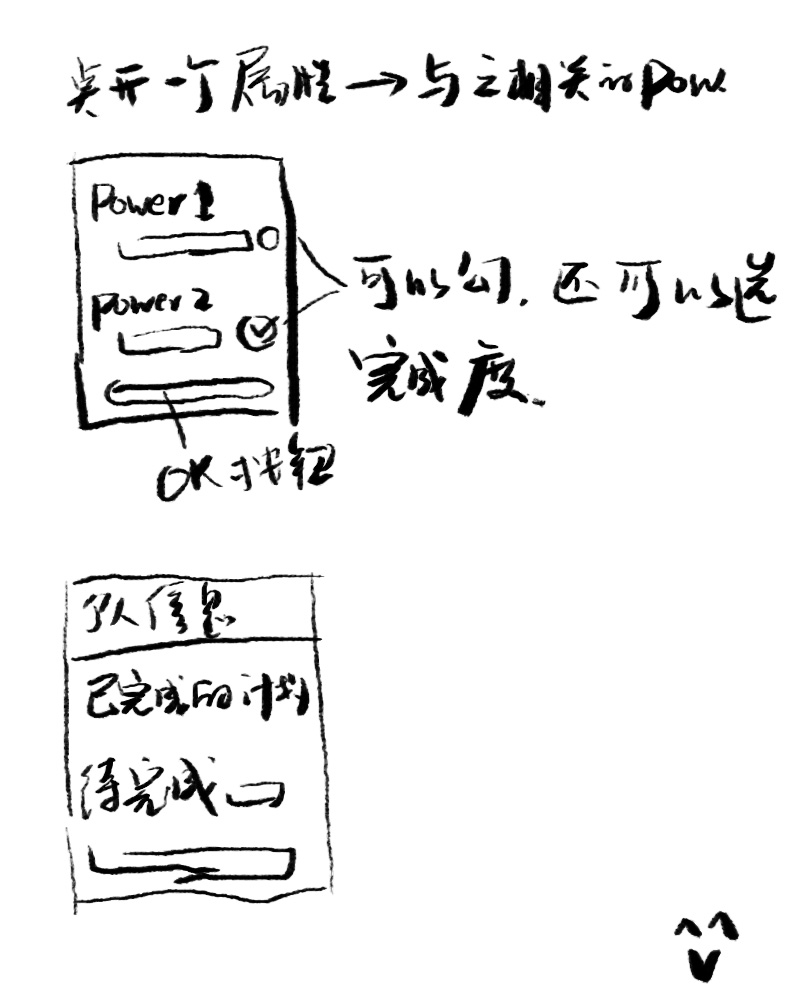 点开一个属性→与之相关的Pow
Power1
power2
可以勾,还可以选
完成度.
OK按钮
个人信息
已完成的计划
待完成